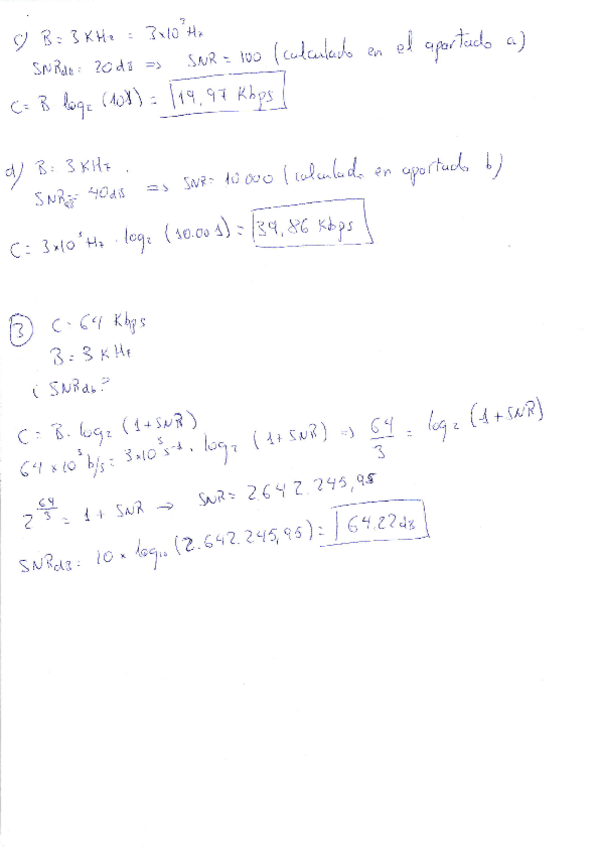 c) B = 3 KHz = 3x10³ Hz
SNRdB = 20dB => SNR = 100 (calculado en el apartado a)
C = B log₂ (101) = 19,97 Kbps
d) B = 3 KHz.
SNRdB = 40dB => SNR = 10000 (calculado en apartado b)
C = 3x10³ Hz · log₂ (10.001) = 39,86 Kbps
③ C = 64 Kbps
B = 3 KHz
¿ SNRdb?
C = B · log₂ (1 + SNR)
64 x 10³ b/s = 3x10³ s⁻¹ · log₂ (1 + SNR) => 64/3 = log₂ (1 + SNR)
2^(64/3) = 1 + SNR → SNR = 2.642.245,95
SNRdB = 10 x log₁₀ (2.642.245,95) = 64,22dB